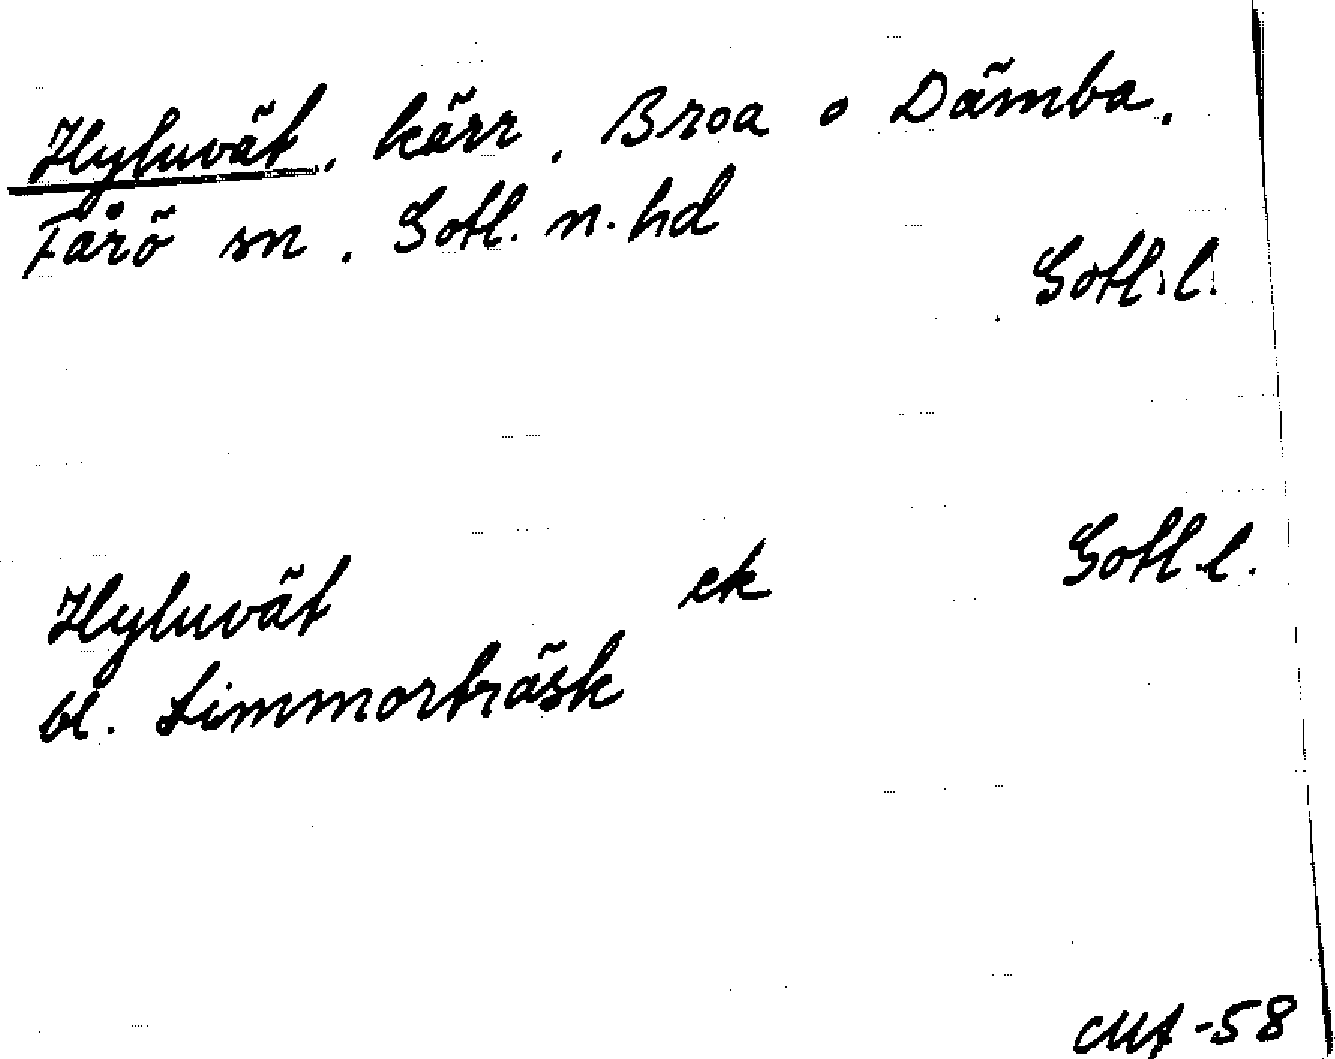 Hyluvät, kärr, Broa o Dämba,
Fårö sn, Gotl. n. hd
Gotl. l.
Hyluvät ek Gotl. l.
bl. Limmorträsk
CMA -58